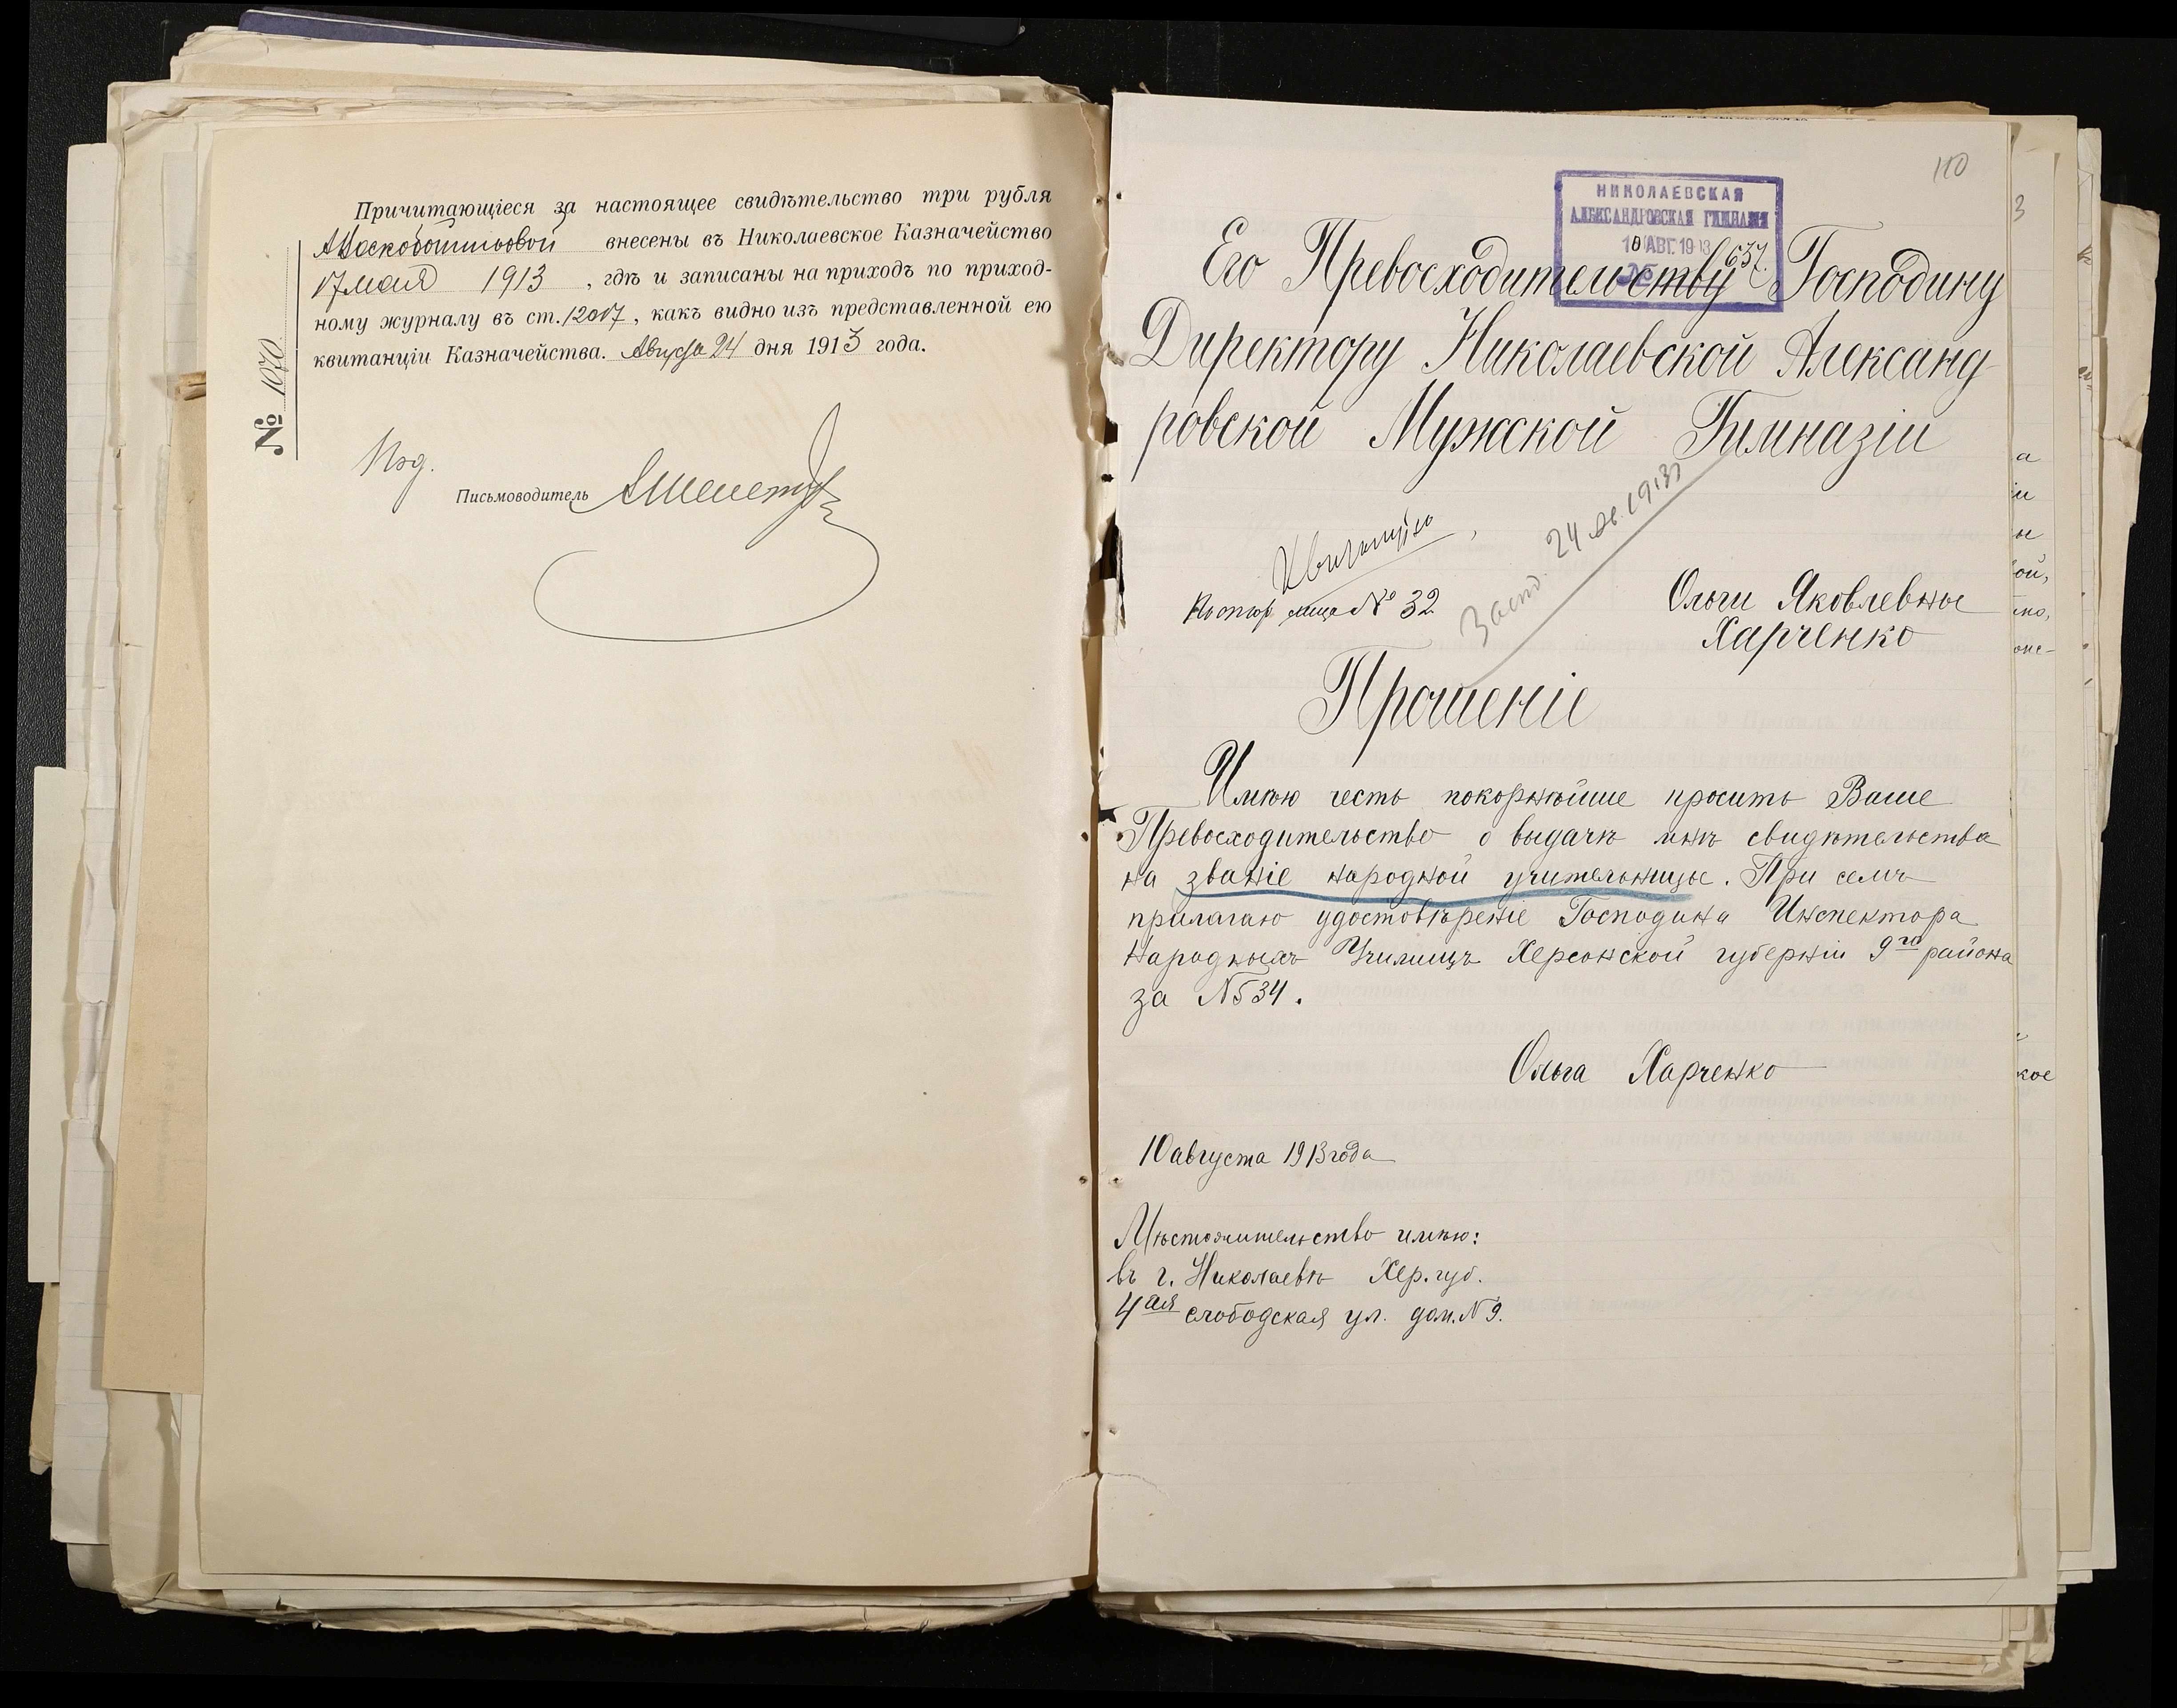 Причитающіеся за настоящее свидѣтельство три рубля
внесены въ Николаевское Казначейство
17 мая 1913, гдѣ и записаны на приходъ по приход-
ному журналу въ ст. 12017, какъ видно изъ представленной ею
квитанціи Казначейства. Августа 24 дня 1913 года.
№ 1070
Письмоводитель
110
НИКОЛАЕВСКАЯ
АЛЕКСАНДРОВСКАЯ ГИМНАЗІЯ
10 АВГ. 1913
637.
Его Превосходительству Господину
Директору Николаевской Александ-
ровской Мужской Гимназіи
Квитанцію
24. 1913
№ 32
Ольги Яковлевны
Харченко
Прошеніе
Имѣю честь покорнѣйше просить Ваше
Превосходительство о выдачѣ мнѣ свидѣтельства
на званіе народной учительницы. При семъ
прилагаю удостовѣреніе Господина Инспектора
Народныхъ Училищъ Херсонской губерніи 9го района
за №534.
Ольга Харченко
10 августа 1913 года
Мѣстожительство имѣю:
въ г. Николаевѣ Хер. губ.
4ая слободская ул. дом. №9.